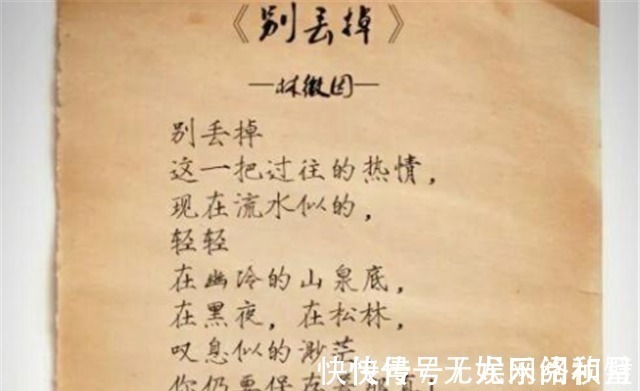 《别丢掉》
—林徽因—
别丢掉
这一把过往的热情，
现在流水似的，
轻轻
在幽冷的山泉底，
在黑夜，在松林，
叹息似的渺茫
你仍要保存
快传号